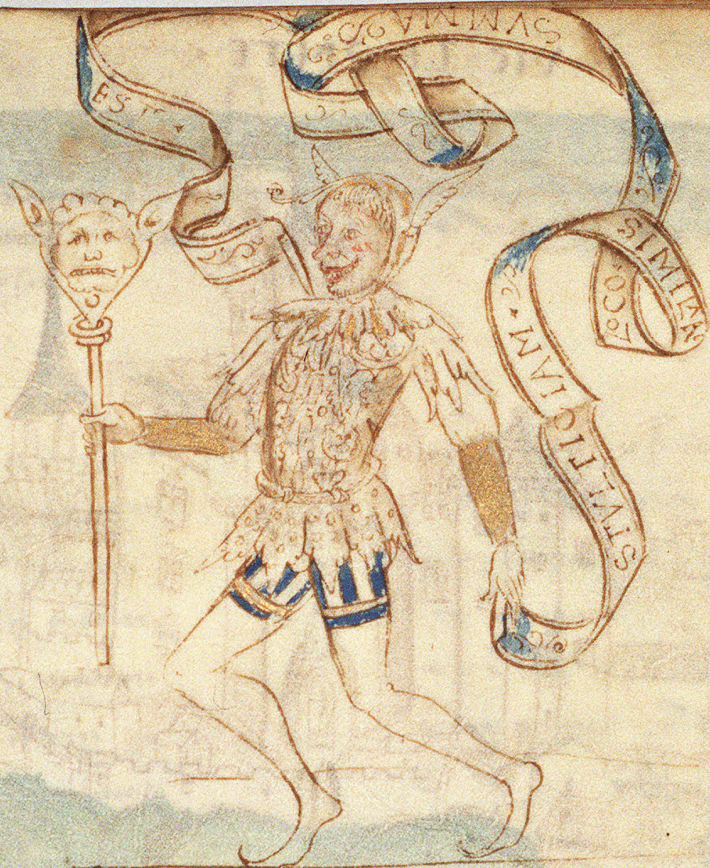 STVLTICIAM
SIMILAR
LOCO
SVMMA
EST